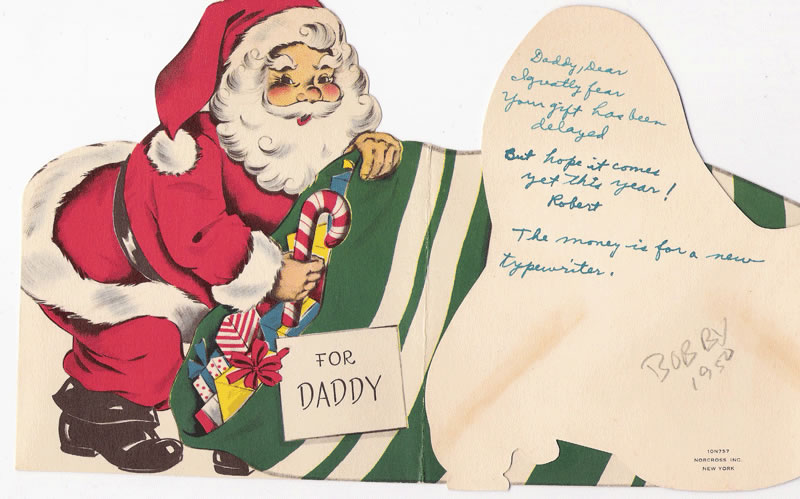 FOR
DADDY
Daddy, Dear
I greatly fear
Your gift has been
delayed
But hope it comes
yet this year!
Robert
The money is for a new
typewriter.
BOBBY
1950
10N757
NORCROSS INC.
NEW YORK